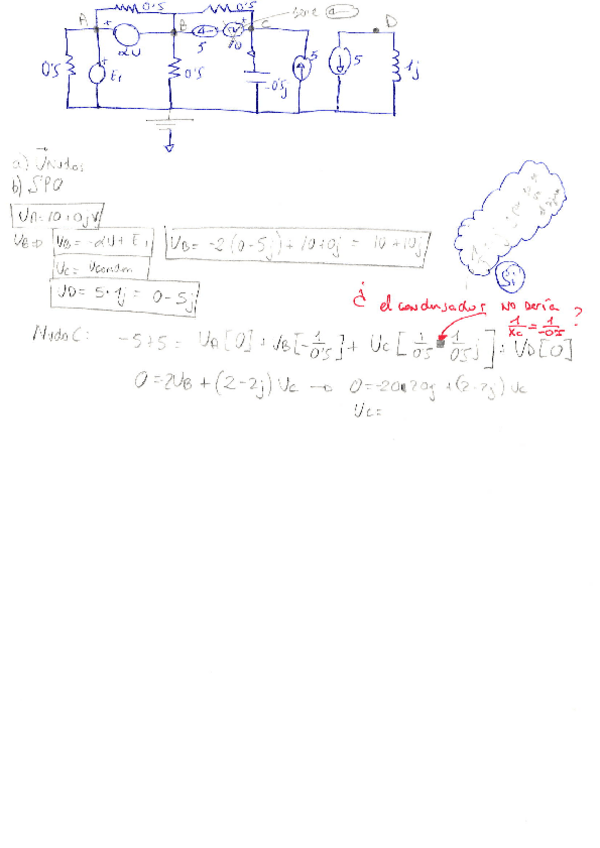 0'5
0'5
A
B
C
D
+
αU
5
10
+
0'5
E1
0'5
-0'5j
5
5
1j
a) Vnudos
b) SPO
UA=10+0j V
UB=D UB = -αU + E1
UB = -2(0-5j) + 10+0j = 10+10j
UC = Uconden
UD = 5·1j = 0-5j
Si
¿ el condensador no sería 1/Xc = 1/-0'5 ?
Nudo C: -5+5 = UA[0] + UB[-1/0'5] + UC[1/0'5 1/0'5j] + UD[0]
0=2UB + (2-2j) UC → 0=-20 20j + (2-2j) UC
UC=